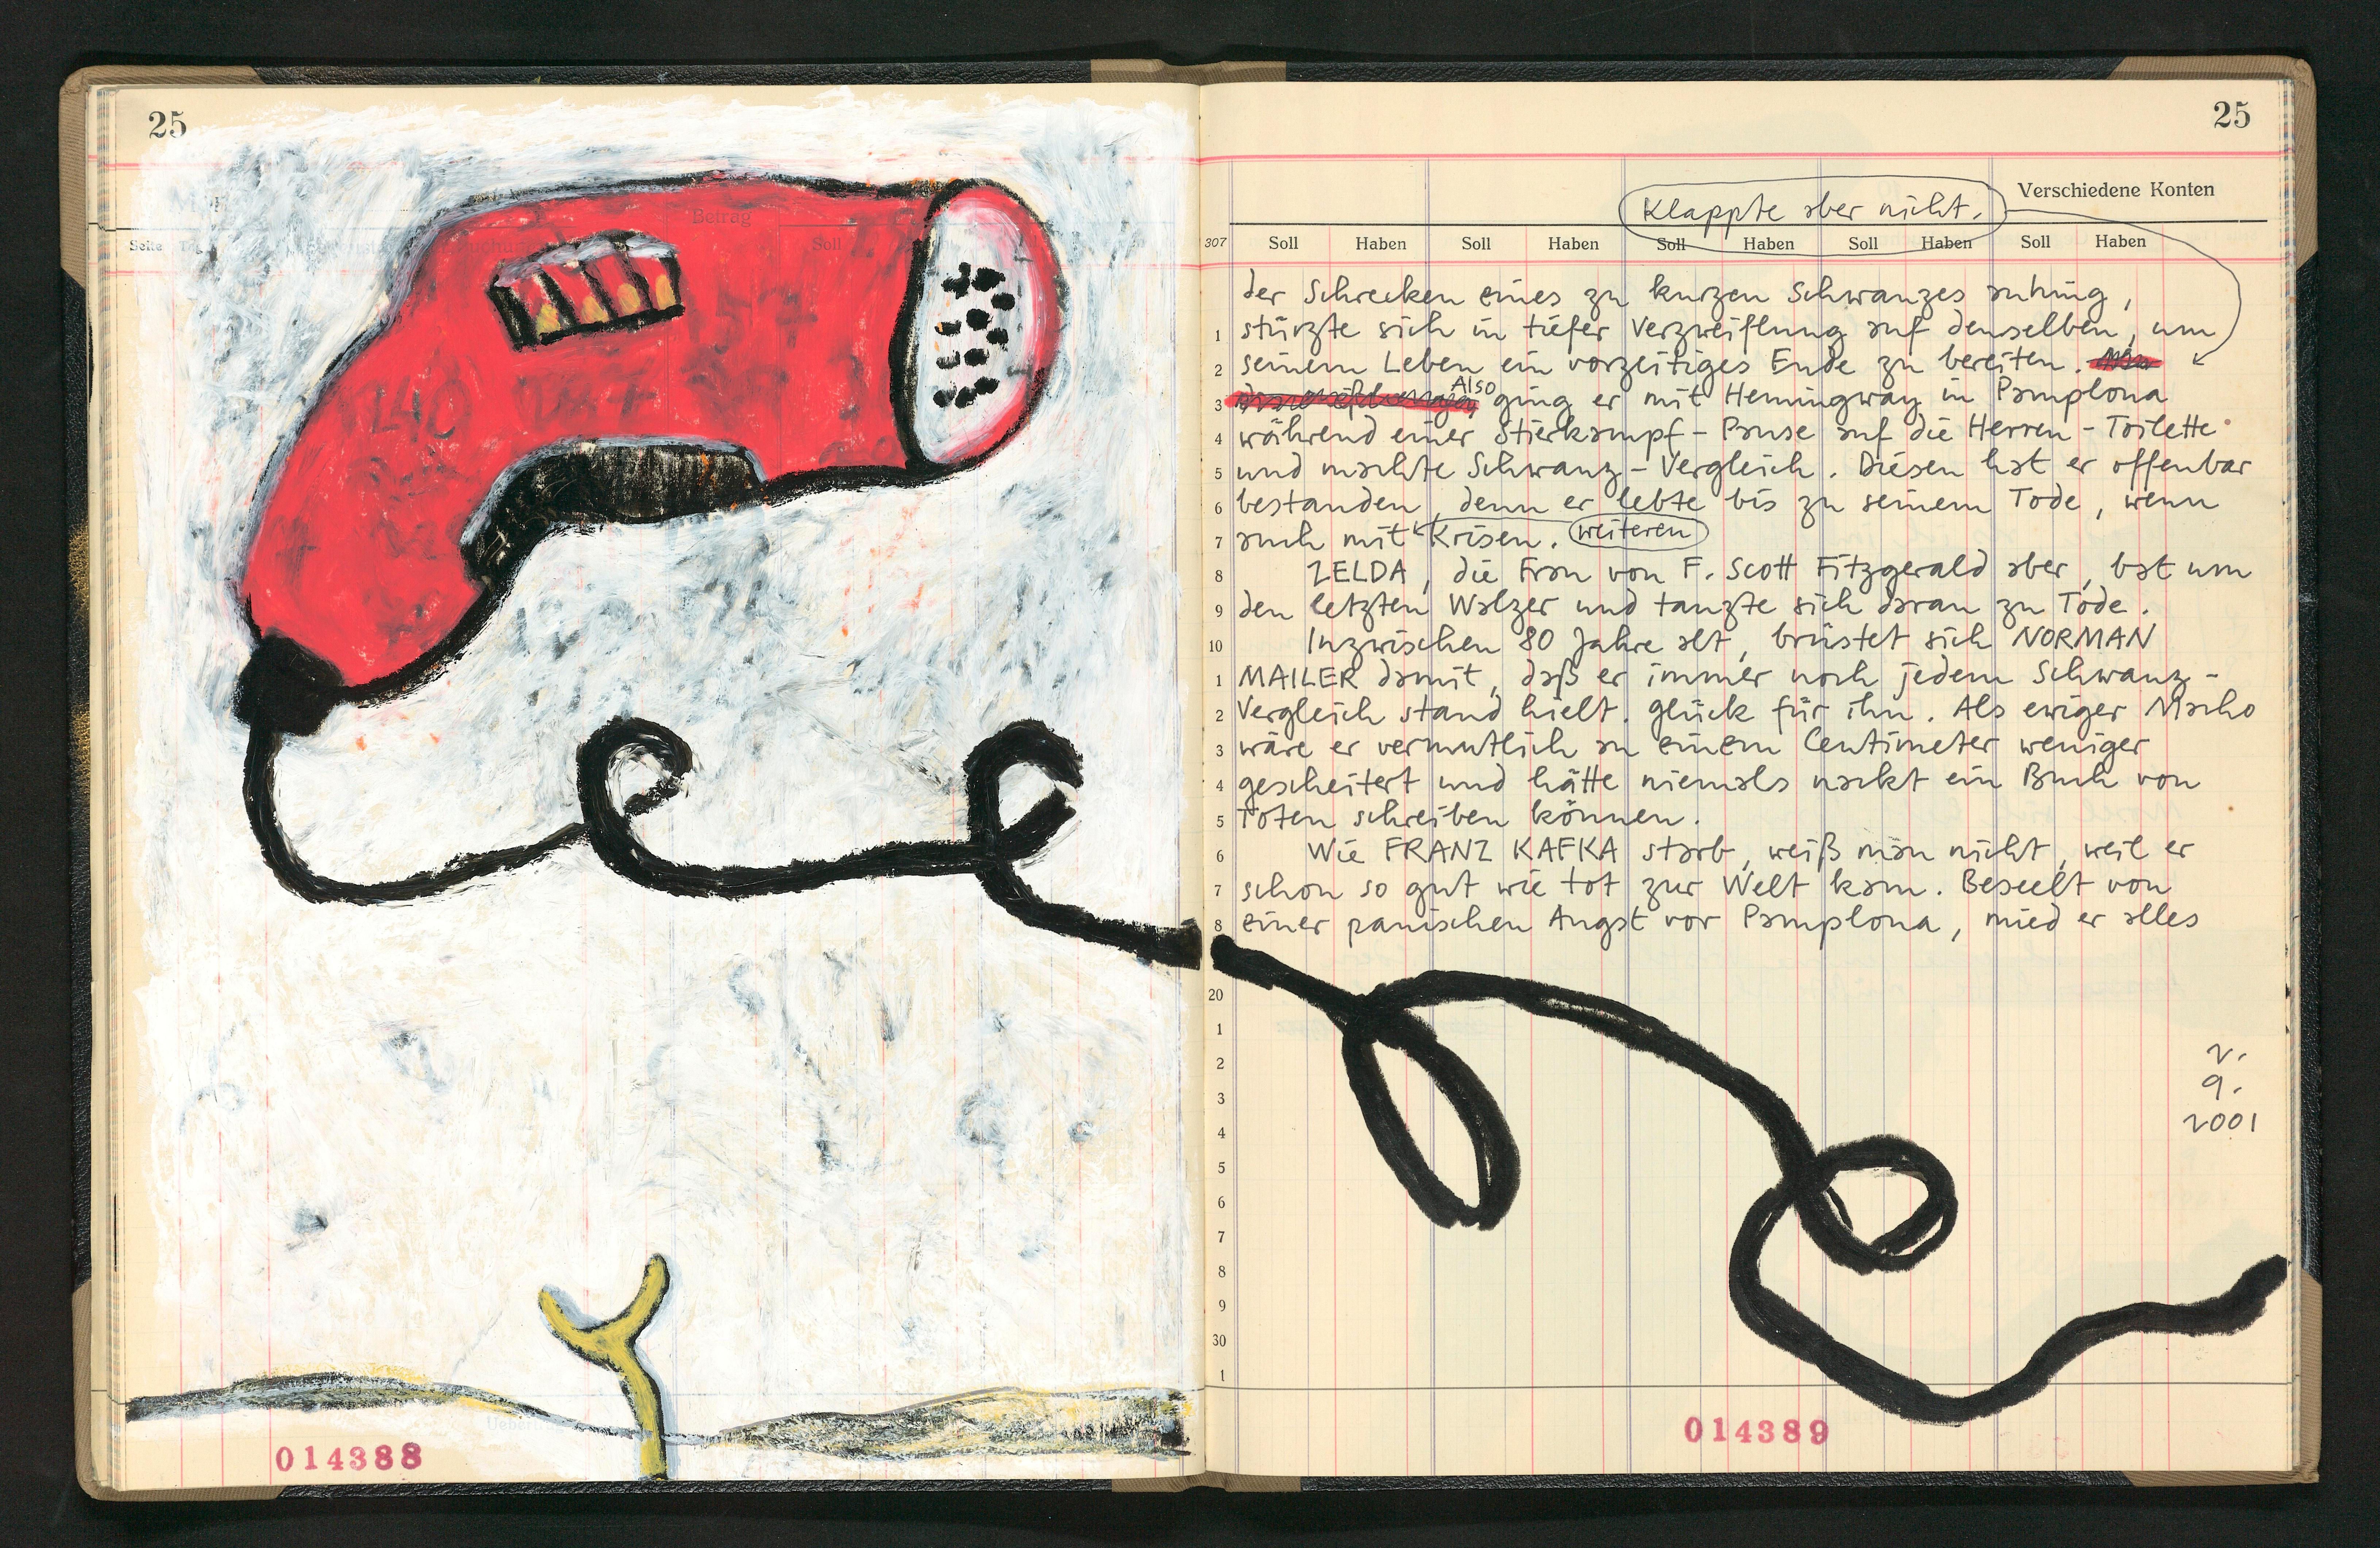 25
Betrag
Seite
Soll
1240
57
014388
25
Verschiedene Konten
Klappte aber nicht.
307 Soll Haben Soll Haben Soll Haben Soll Haben Soll Haben
der Schrecken eines zu kurzen Schwanzes anhing,
1 stürzte sich in tiefer Verzweiflung auf denselben, um
2 seinem Leben ein vorzeitiges Ende zu bereiten.
3 Also ging er mit Hemingway in Pamplona
4 während einer Stierkampf-Pause auf die Herren-Toilette
5 und machte Schwanz-Vergleich. Diesen hat er offenbar
6 bestanden, denn er lebte bis zu seinem Tode, wenn
7 auch mit Krisen. weiteren
8 ZELDA, die Frau von F. Scott Fitzgerald aber, bat um
9 den letzten Walzer und tanzte sich daran zu Tode.
10 Inzwischen 80 Jahre alt, brüstet sich NORMAN
1 MAILER damit, daß er immer noch jedem Schwanz-
2 Vergleich stand hielt. Glück für ihn. Als ewiger Macho
3 wäre er vermutlich an einem Centimeter weniger
4 gescheitert und hätte niemals nackt ein Buch von
5 Toten schreiben können.
6 Wie FRANZ KAFKA starb, weiß man nicht, weil er
7 schon so gut wie tot zur Welt kam. Beseelt von
8 einer panischen Angst vor Pamplona, mied er alles
20
1
2
3
4
5
6
7
8
9
30
1
2.
9.
2001
014389